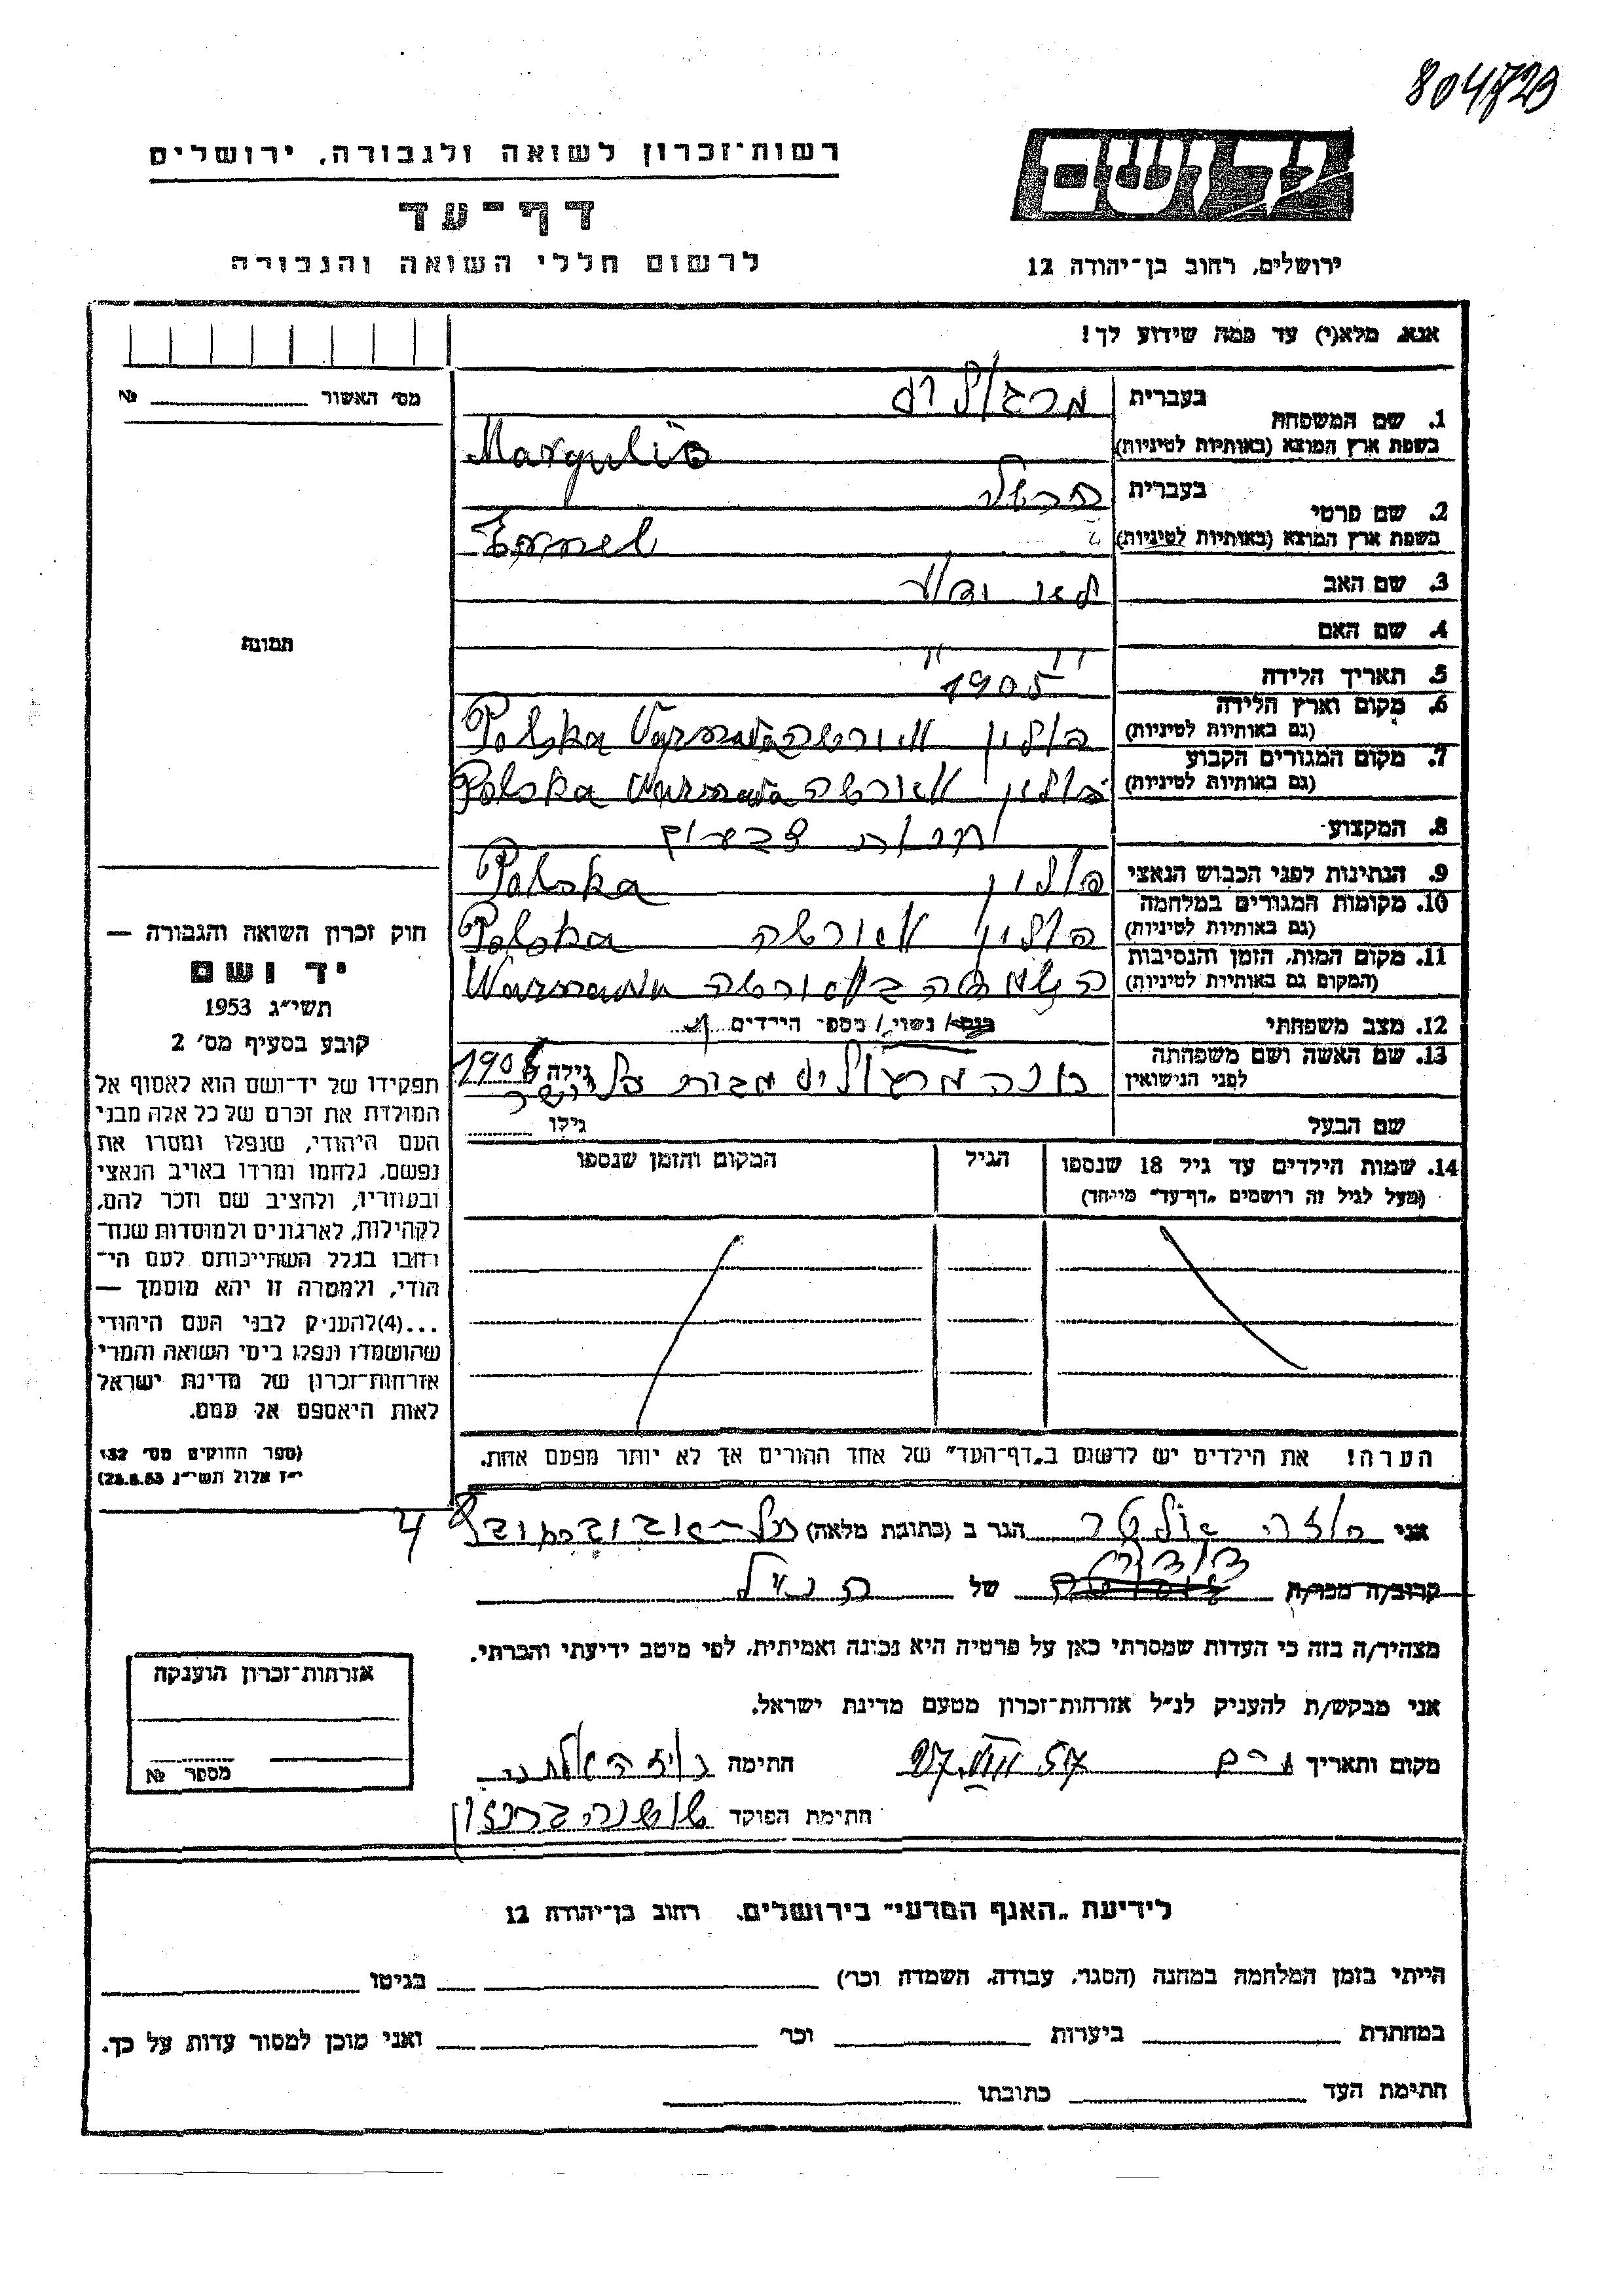 804723
רשות־זכרון לשואה ולגבורה, ירושלים
יד ושם
דף־עד
לרשום חללי השואה והגבורה
ירושלים, רחוב בן־יהודה 12
אנא, מלא(י) עד כמה שידוע לך!
מס׳ האשור № 
1. שם המשפחה
בעברית מרגוליס
בשפת ארץ המוצא (באותיות לטיניות) Margulis
2. שם פרטי
בעברית
בשפת ארץ המוצא (באותיות לטיניות)
3. שם האב לא ידוע
4. שם האם " "
5. תאריך הלידה 1905
6. מקום וארץ הלידה (גם באותיות לטיניות) פולין וורשה Polska Warszawa
7. מקום המגורים הקבוע (גם באותיות לטיניות) פולין וורשה Polska Warszawa
8. המקצוע חרושת צבעים
9. הנתינות לפני הכבוש הנאצי פולין Polska
10. מקומות המגורים במלחמה (גם באותיות לטיניות) פולין וורשה Polska
11. מקום המות, הזמן והנסיבות (המקום גם באותיות לטיניות) השמדה בוורשה Warszawa
12. מצב משפחתי רווק/ נשוי/ מספר הילדים
13. שם האשה ושם משפחתה לפני הנישואין מרגוליס מבית גילה 1906
שם הבעל גילו
14. שמות הילדים עד גיל 18 שנספו (מעל לגיל זה רושמים „דף־עד״ מיוחד)
הגיל
המקום והזמן שנספו
הערה! את הילדים יש לרשום ב„דף־העד״ של אחד ההורים אך לא יותר מפעם אחת.
תמונה
חוק זכרון השואה והגבורה —
יד ושם
תשי״ג 1953
קובע בסעיף מס׳ 2
תפקידו של יד־ושם הוא לאסוף אל
המולדת את זכרם של כל אלה מבני
העם היהודי, שנפלו ומסרו את
נפשם, נלחמו ומרדו באויב הנאצי
ובעוזריו, ולהציב שם וזכר להם,
לקהילות, לארגונים ולמוסדות שנח־
רבו בגלל השתייכותם לעם הי־
הודי, ולמטרה זו יהא מוסמך —
...(4)להעניק לבני העם היהודי
שהושמדו ונפלו בימי השואה והמרי
אזרחות־זכרון של מדינת ישראל
לאות היאספם אל עמם.
(ספר החוקים מס׳ 132
י״ז אלול תשי״ג 28.8.53)
אני אולטר הגר ב (כתובת מלאה) תל־אביב 4
קרוב/ה מכר/ה דודה של הנ״ל
מצהיר/ה בזה כי העדות שמסרתי כאן על פרטיה היא נכונה ואמיתית, לפי מיטב ידיעתי והכרתי.
אני מבקש/ת להעניק לנ״ל אזרחות־זכרון מטעם מדינת ישראל.
מקום ותאריך 27.VIII 57 חתימה
חתימת הפוקד שושנה
אזרחות־זכרון הוענקה
מספר №
לידיעת „האגף המדעי״ בירושלים, רחוב בן־יהודה 12
הייתי בזמן המלחמה במחנה (הסגר, עבודה, השמדה וכר׳) בגיטו
במחתרת ביערות וכר׳ ואני מוכן למסור עדות על כך.
חתימת העד כתובתו